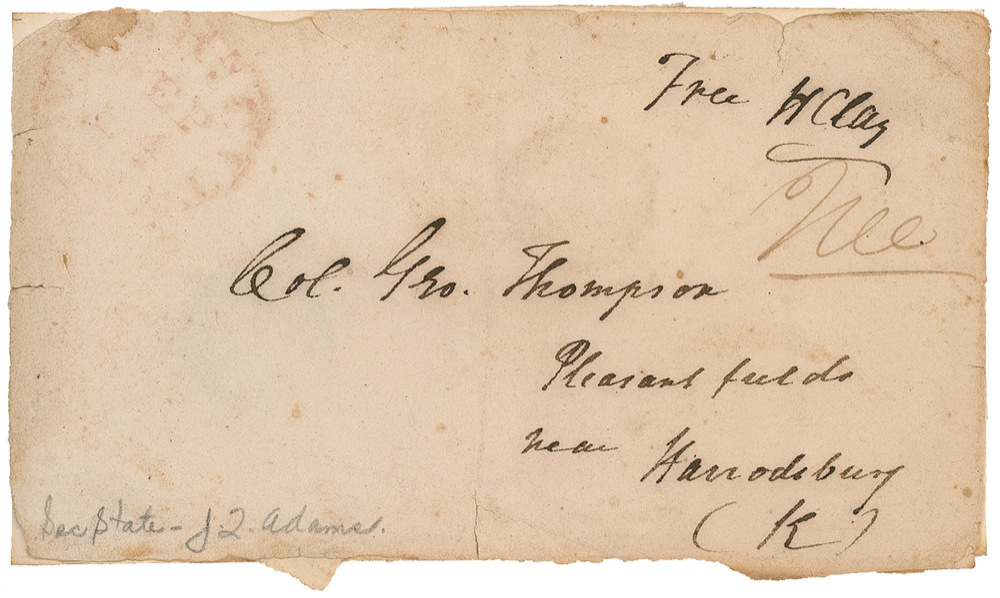 Free H Clay
Free
Col. Geo. Thompson
Pleasant fields
near Harrodsburg
(K)
Sec State - J. Q. Adams.